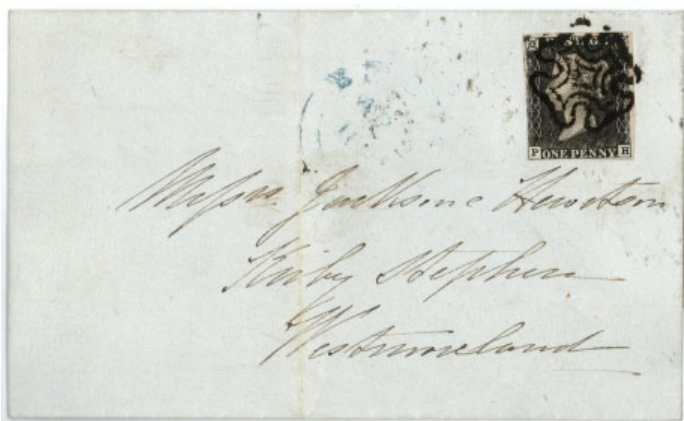 P ONE PENNY H
Messrs Jackson & Hewitson
Kirby Stephen
Westmoreland